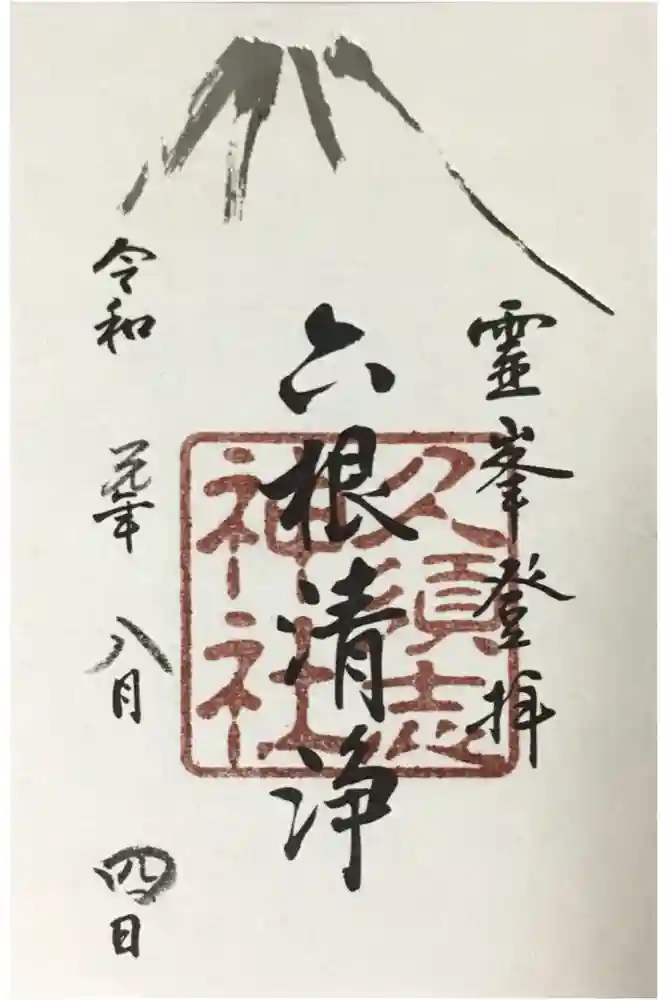 霊峯登拝
六根清浄
久須志
神社
令和元年八月四日